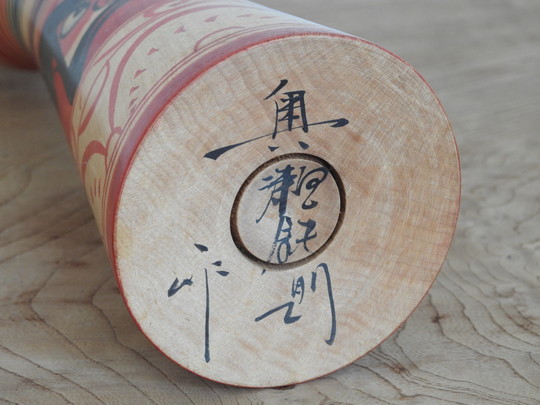 奥瀬鉄則
作